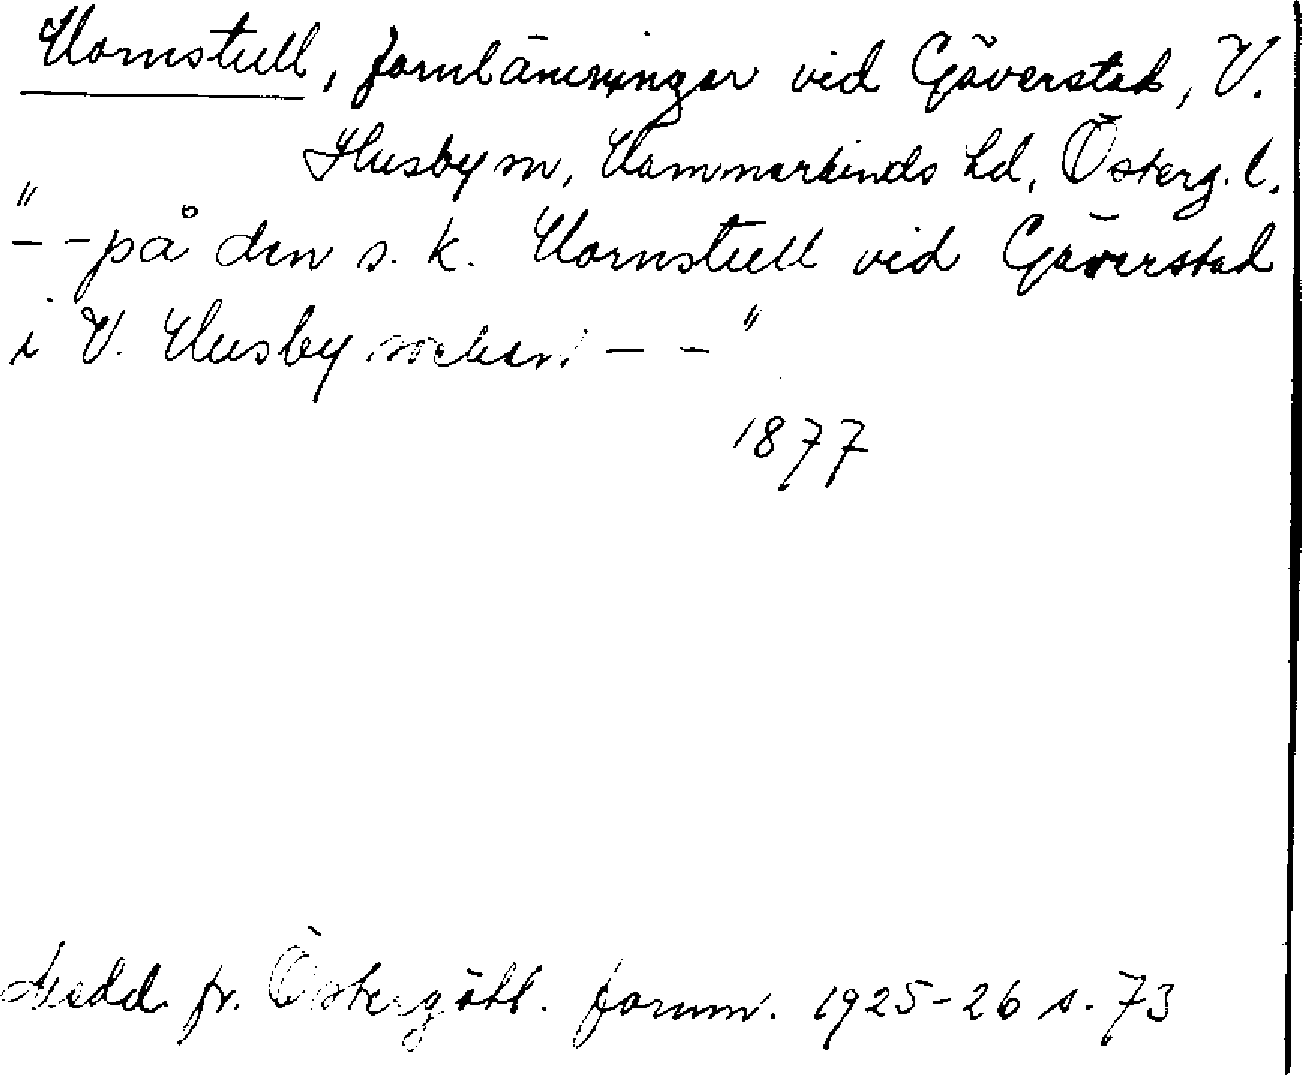 Hornstull, fornlämningar vid Gäverstad, V.
Husby sn, Hammarkinds hd, Österg. l.
"– – på den s. k. Hornstull vid Gäverstad
i V. Husby socken. – – "
1877
Medd. fr. Östergötl. fornm. 1925–26 s. 73